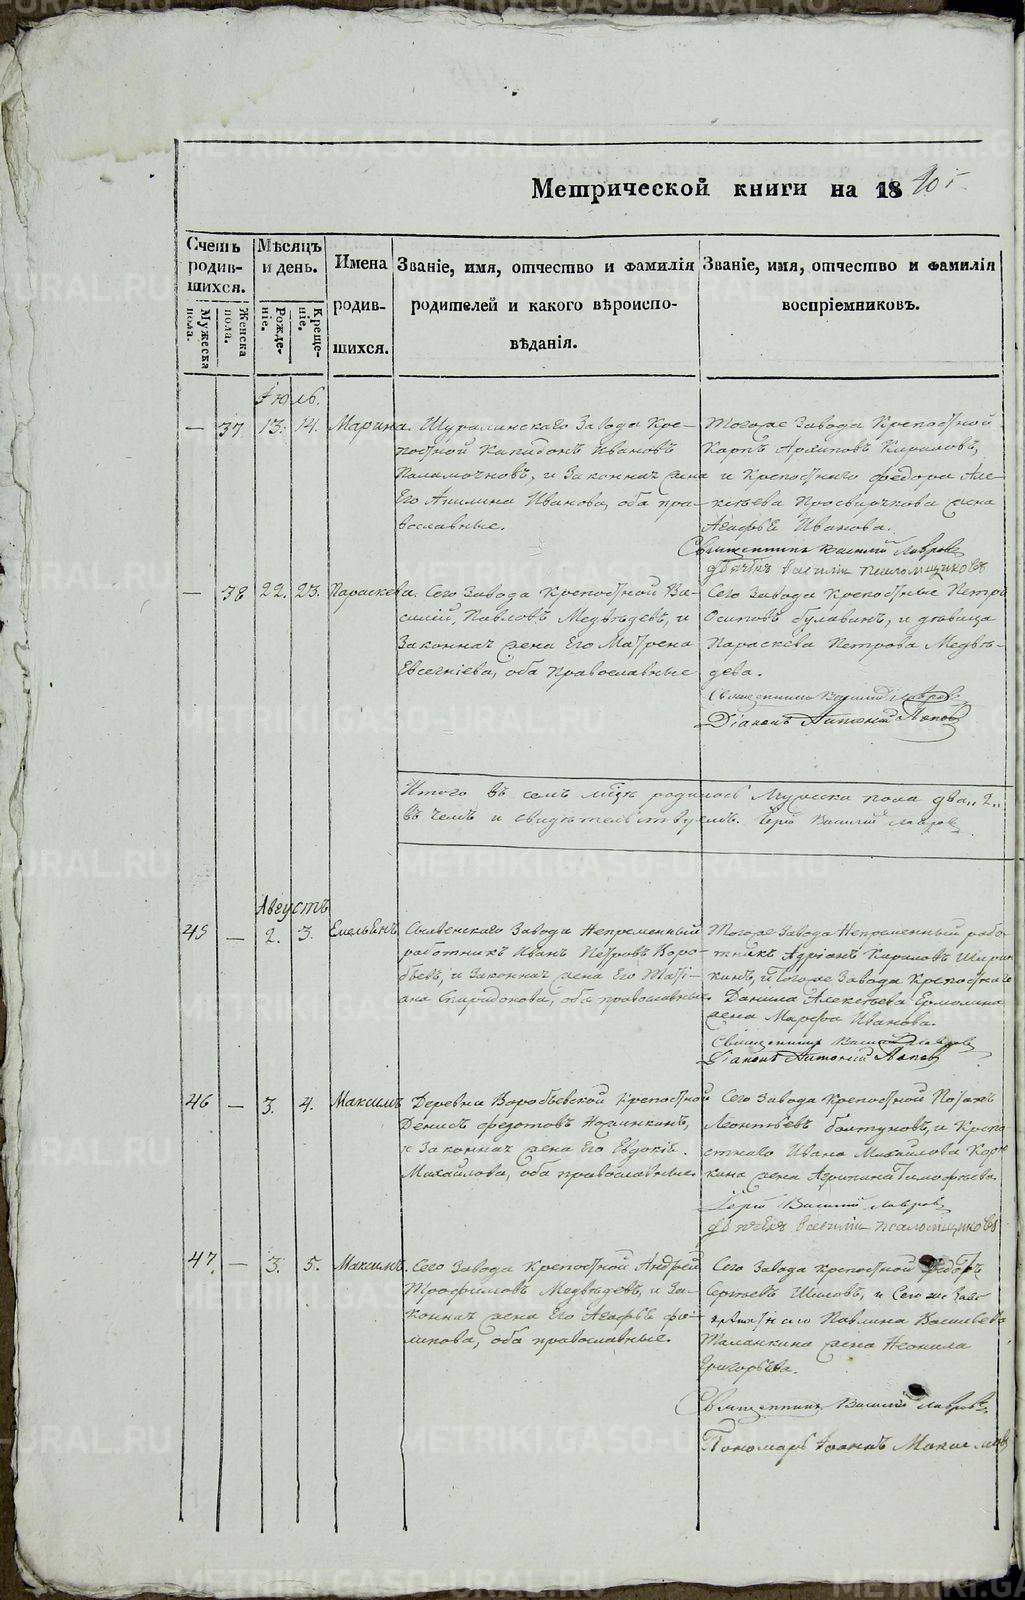 Метрической книги на 18
Счетъ родив-шихся.
Мужеска пола.
Женска пола.
Мѣсяцъ и день.
Рожде-ніе.
Креще-ніе.
Имена родив-шихся.
Званіе, имя, отчество и фамилія
родителей и какого вѣроиспо-
вѣданія.
Званіе, имя, отчество и фамилія
воспріемниковъ.
Іюль.
— 37 13. 14. Марина.
Шуралинскаго Завода Кре-
постной Капидонъ Ивановъ
и Законная жена
Его Акилина Иванова, оба пра-
вославные.
Тогоже Завода Крепостной
Карпъ Архиповъ Кириловъ,
и Крепостнаго Федора Але-
ксѣева Просвирякова жена
Агафья Иванова.
Священникъ Василий Лавровъ
дьячекъ Василий Псаломщиковъ
— 38 22. 23. Параскева.
Сего Завода Крепостной Ва-
силий Павловъ Медвѣдевъ, и
Законная жена Его Матрена
Евсегніева, оба православные
Сего Завода Крепостные Петръ
Осиповъ Булавинъ, и дѣвица
Параскева Петрова Медвѣ-
дева.
Священникъ Василий Лавровъ
Діаконъ Антоній Поповъ
Итого въ семъ мцѣ родилось Мужеска пола два „2„
въ чемъ и свидѣтельствуемъ. Іерей Василий Лавровъ
Августъ
45 — 2. 3. Емельянъ
Сылвенскаго Завода Непременный
работникъ Иванъ Петровъ Воро-
бьевъ, и Законная жена Его Тати-
ана Спиридонова, оба православные.
Тогоже Завода Непременный рабо-
тникъ Адріанъ Кариловъ
и Тогоже Завода Крепостнаго
Данила Алексѣева Ермолина
жена Марфа Иванова.
Священникъ Василий Лавровъ
Діаконъ Антоній Поповъ
46 — 3. 4. Максимъ
Деревни Воробьевской Крепостной
Денисъ Федотовъ
и Законная жена Его Евдокія
Михайлова, оба православные.
Сего Завода Крепостной Потапъ
Леонтьевъ Болтуновъ, и Крепо-
стнаго Ивана Михайлова
жена Агрипина Тимофѣева.
Іерей Василий Лавровъ
дьячекъ Василий Псаломщиковъ
47. — 3. 5. Максимъ.
Сего Завода Крепостной Андрей
Трофимовъ Медвѣдевъ, и За-
конная жена Его Агафья Фи-
липова, оба православные.
Сего Завода Крепостной Федоръ
Сергѣевъ Шиловъ, и Сегоже Заво
Павлина Васильева
Таланкина жена Неонила
Григорьева.
Священникъ Василий Лавровъ.
Пономарь Іоаннъ
METRIKI.GASO-URAL.RU